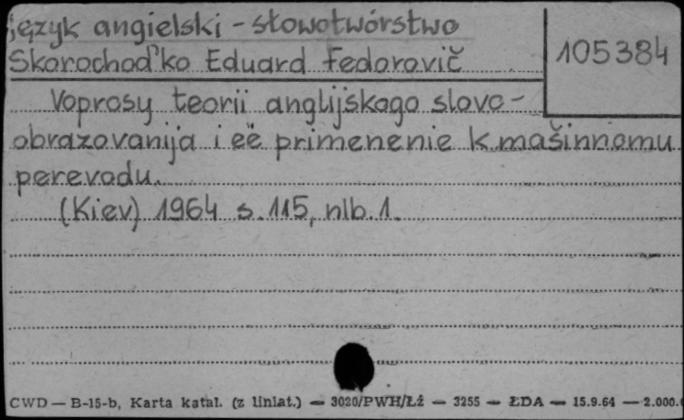 język angielski - słowotwórstwo
Skorochod'ko Eduard Fedorovič
105384
Voprosy teorii anglijskogo slovo-
obrazovanija i eë primenenie k mašinnomu
perevodu.
(Kiev) 1964 s. 115, nlb. 1.
CWD — B-15-b, Karta katal. (z liniat.) — 3020/PWH/Łź — 3255 — ŁDA — 15.9.64 — 2.000.